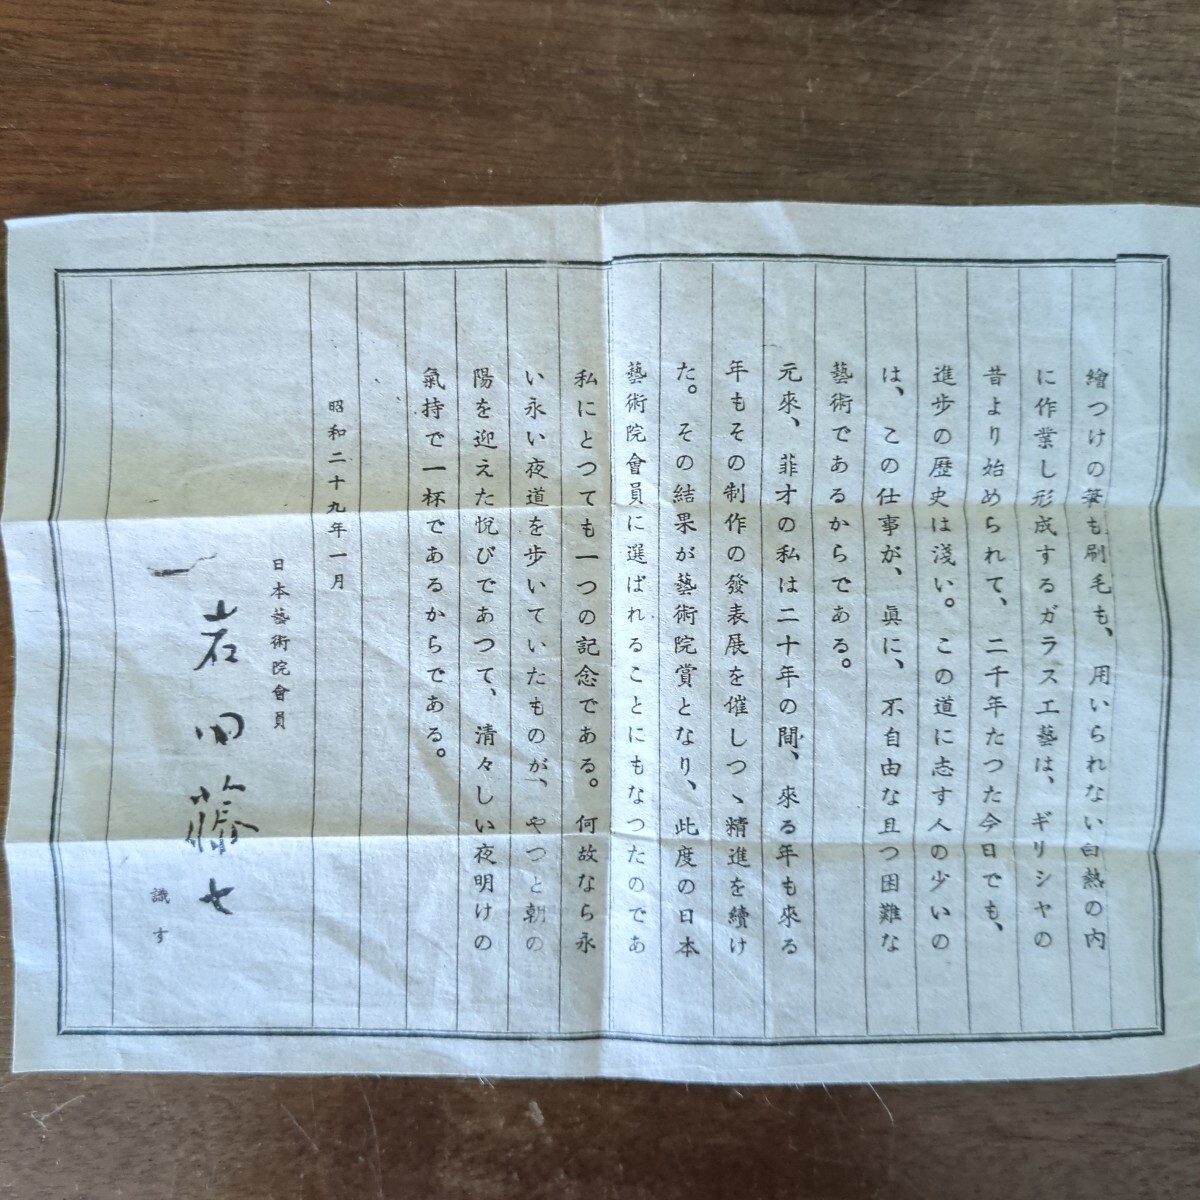 繪つけの筆も刷毛も、用いられない白熱の内
に作業し形成するガラス工藝は、ギリシヤの
昔より始められて、二千年たつた今日でも、
進歩の歴史は淺い。この道に志す人の少いの
は、この仕事が、眞に、不自由な且つ困難な
藝術であるからである。
元來、菲才の私は二十年の間、來る年も來る
年もその制作の發表展を催しつゝ精進を續け
た。その結果が藝術院賞となり、此度の日本
藝術院會員に選ばれることにもなつたのであ
私にとつても一つの記念である。何故なら永
い永い夜道を歩いていたものが、やつと朝の
陽を迎えた悅びであつて、清々しい夜明けの
氣持で一杯であるからである。
昭和二十九年一月
日本藝術院會員
岩田藤七
識す